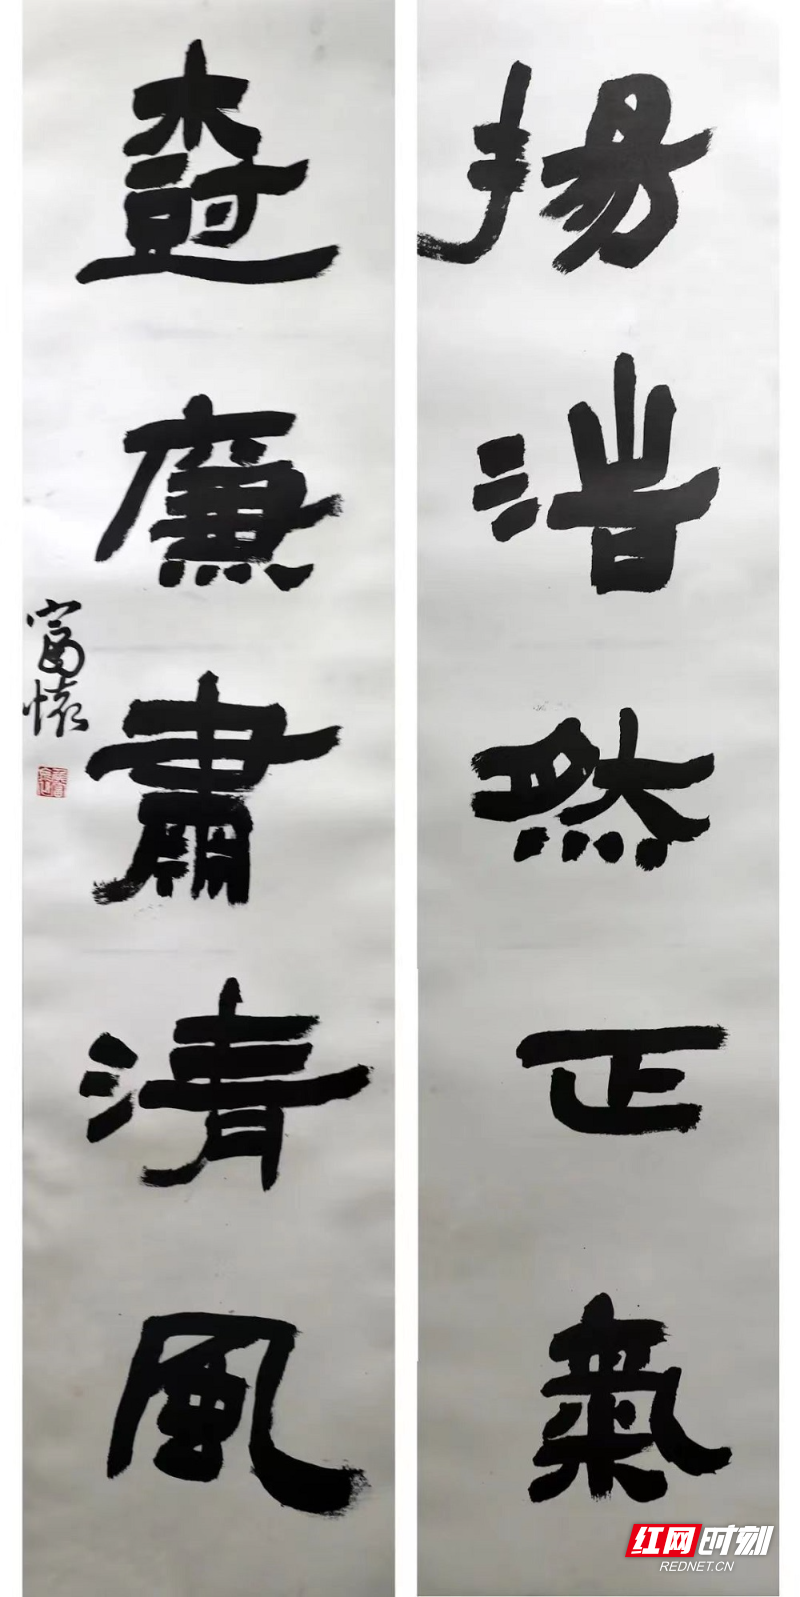 揚浩然正氣
樹廉肅清風
富懷
红网时刻
REDNET.CN